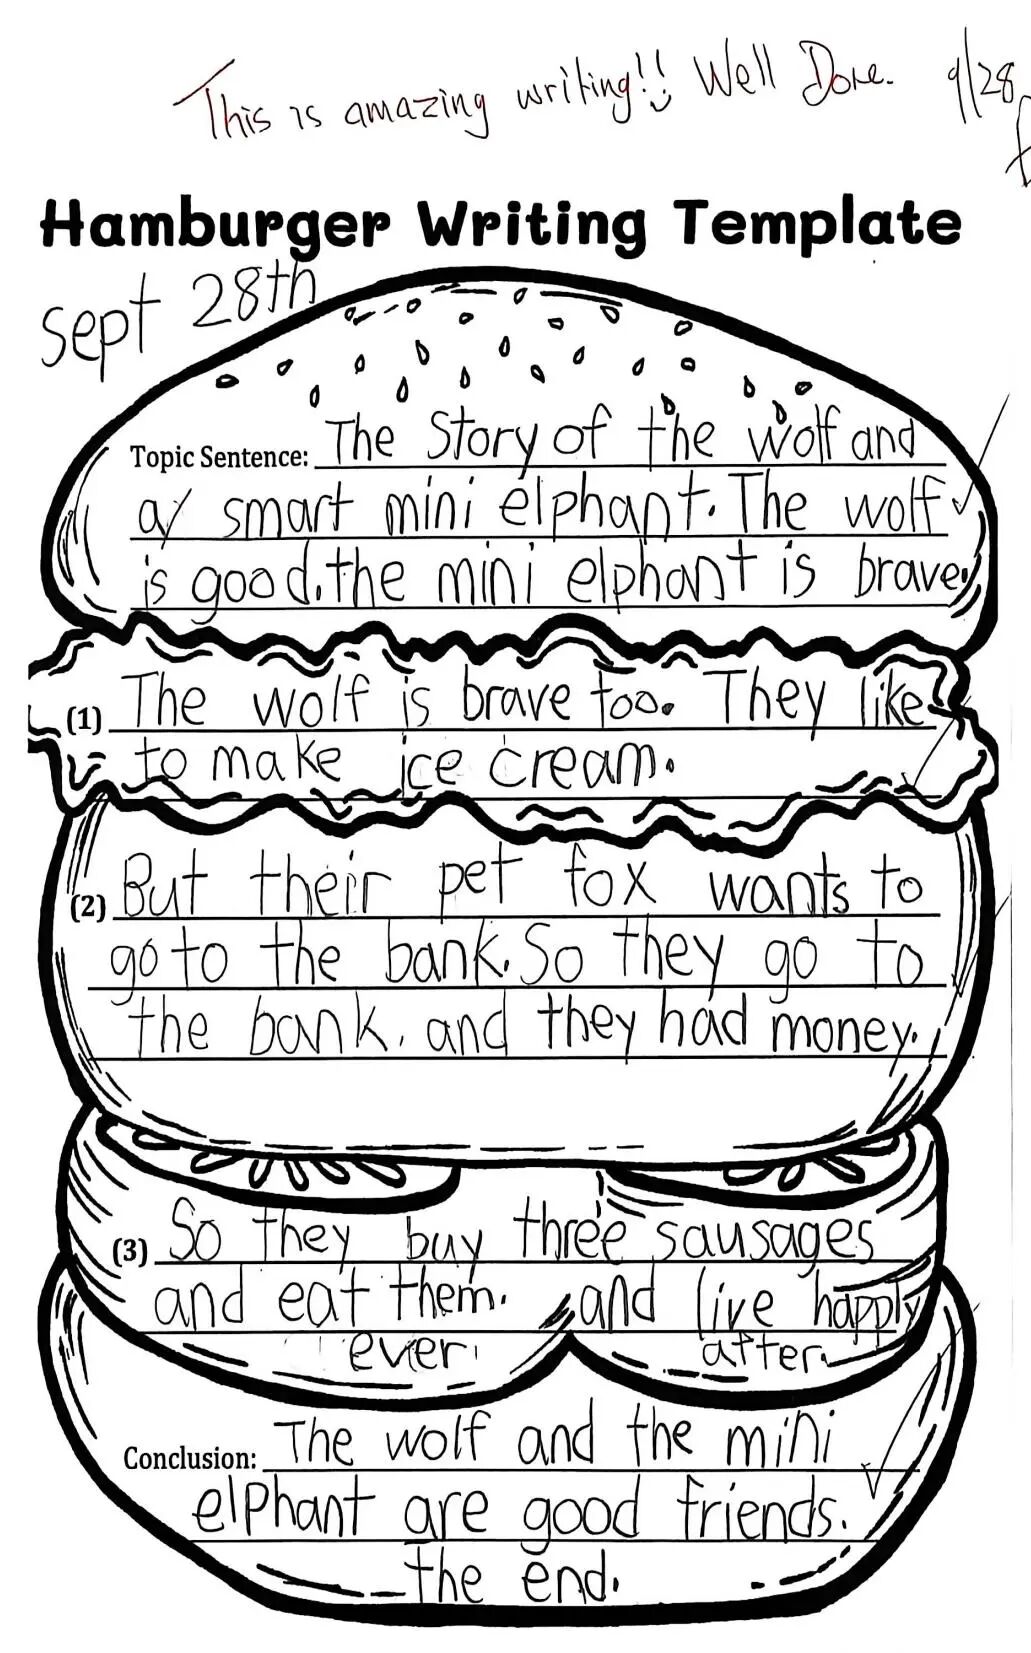 This is amazing writing!! Well Done. 9/28
Hamburger Writing Template
sept 28th
Topic Sentence: The Story of the wolf and
a smart mini elphant. The wolf
is good. the mini elphant is brave.
(1) The wolf is brave too. They like
to make ice cream.
(2) But their pet fox wants to
go to the bank. So they go to
the bank. and they had money.
(3) So they buy three sausages
and eat them. and live happly
ever after.
Conclusion: The wolf and the mini
elphant are good friends.
the end.